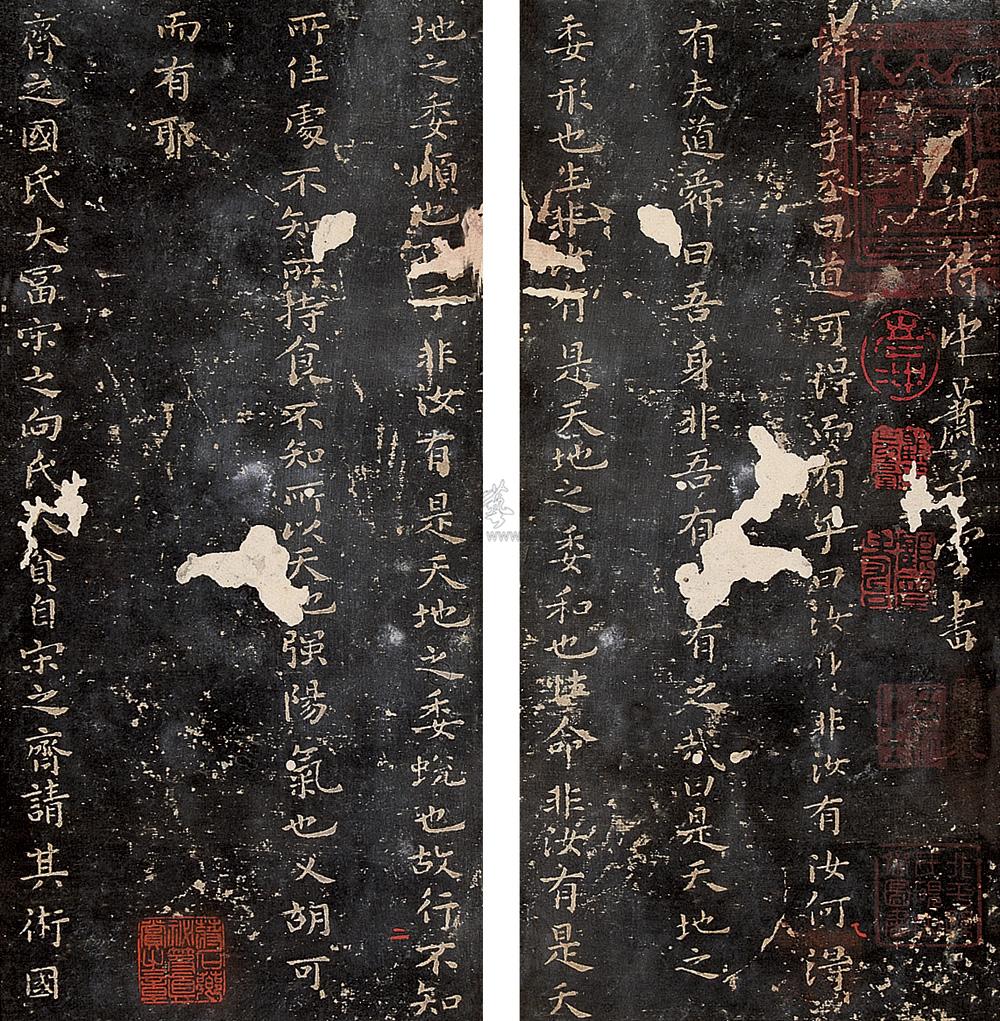 梁侍中蕭子雲書
舜問乎丞曰道可得而有乎曰汝身非汝有汝何得
有夫道舜曰吾身非吾有有之哉曰是天地之
委形也生非汝有是天地之委和也性命非汝有是天
地之委順也子非汝有是天地之委蛻也故行不知
所住處不知所持食不知所以天也强陽氣也又胡可
而有耶
齊之國氏大富宋之向氏大貧自宋之齊請其術國
二